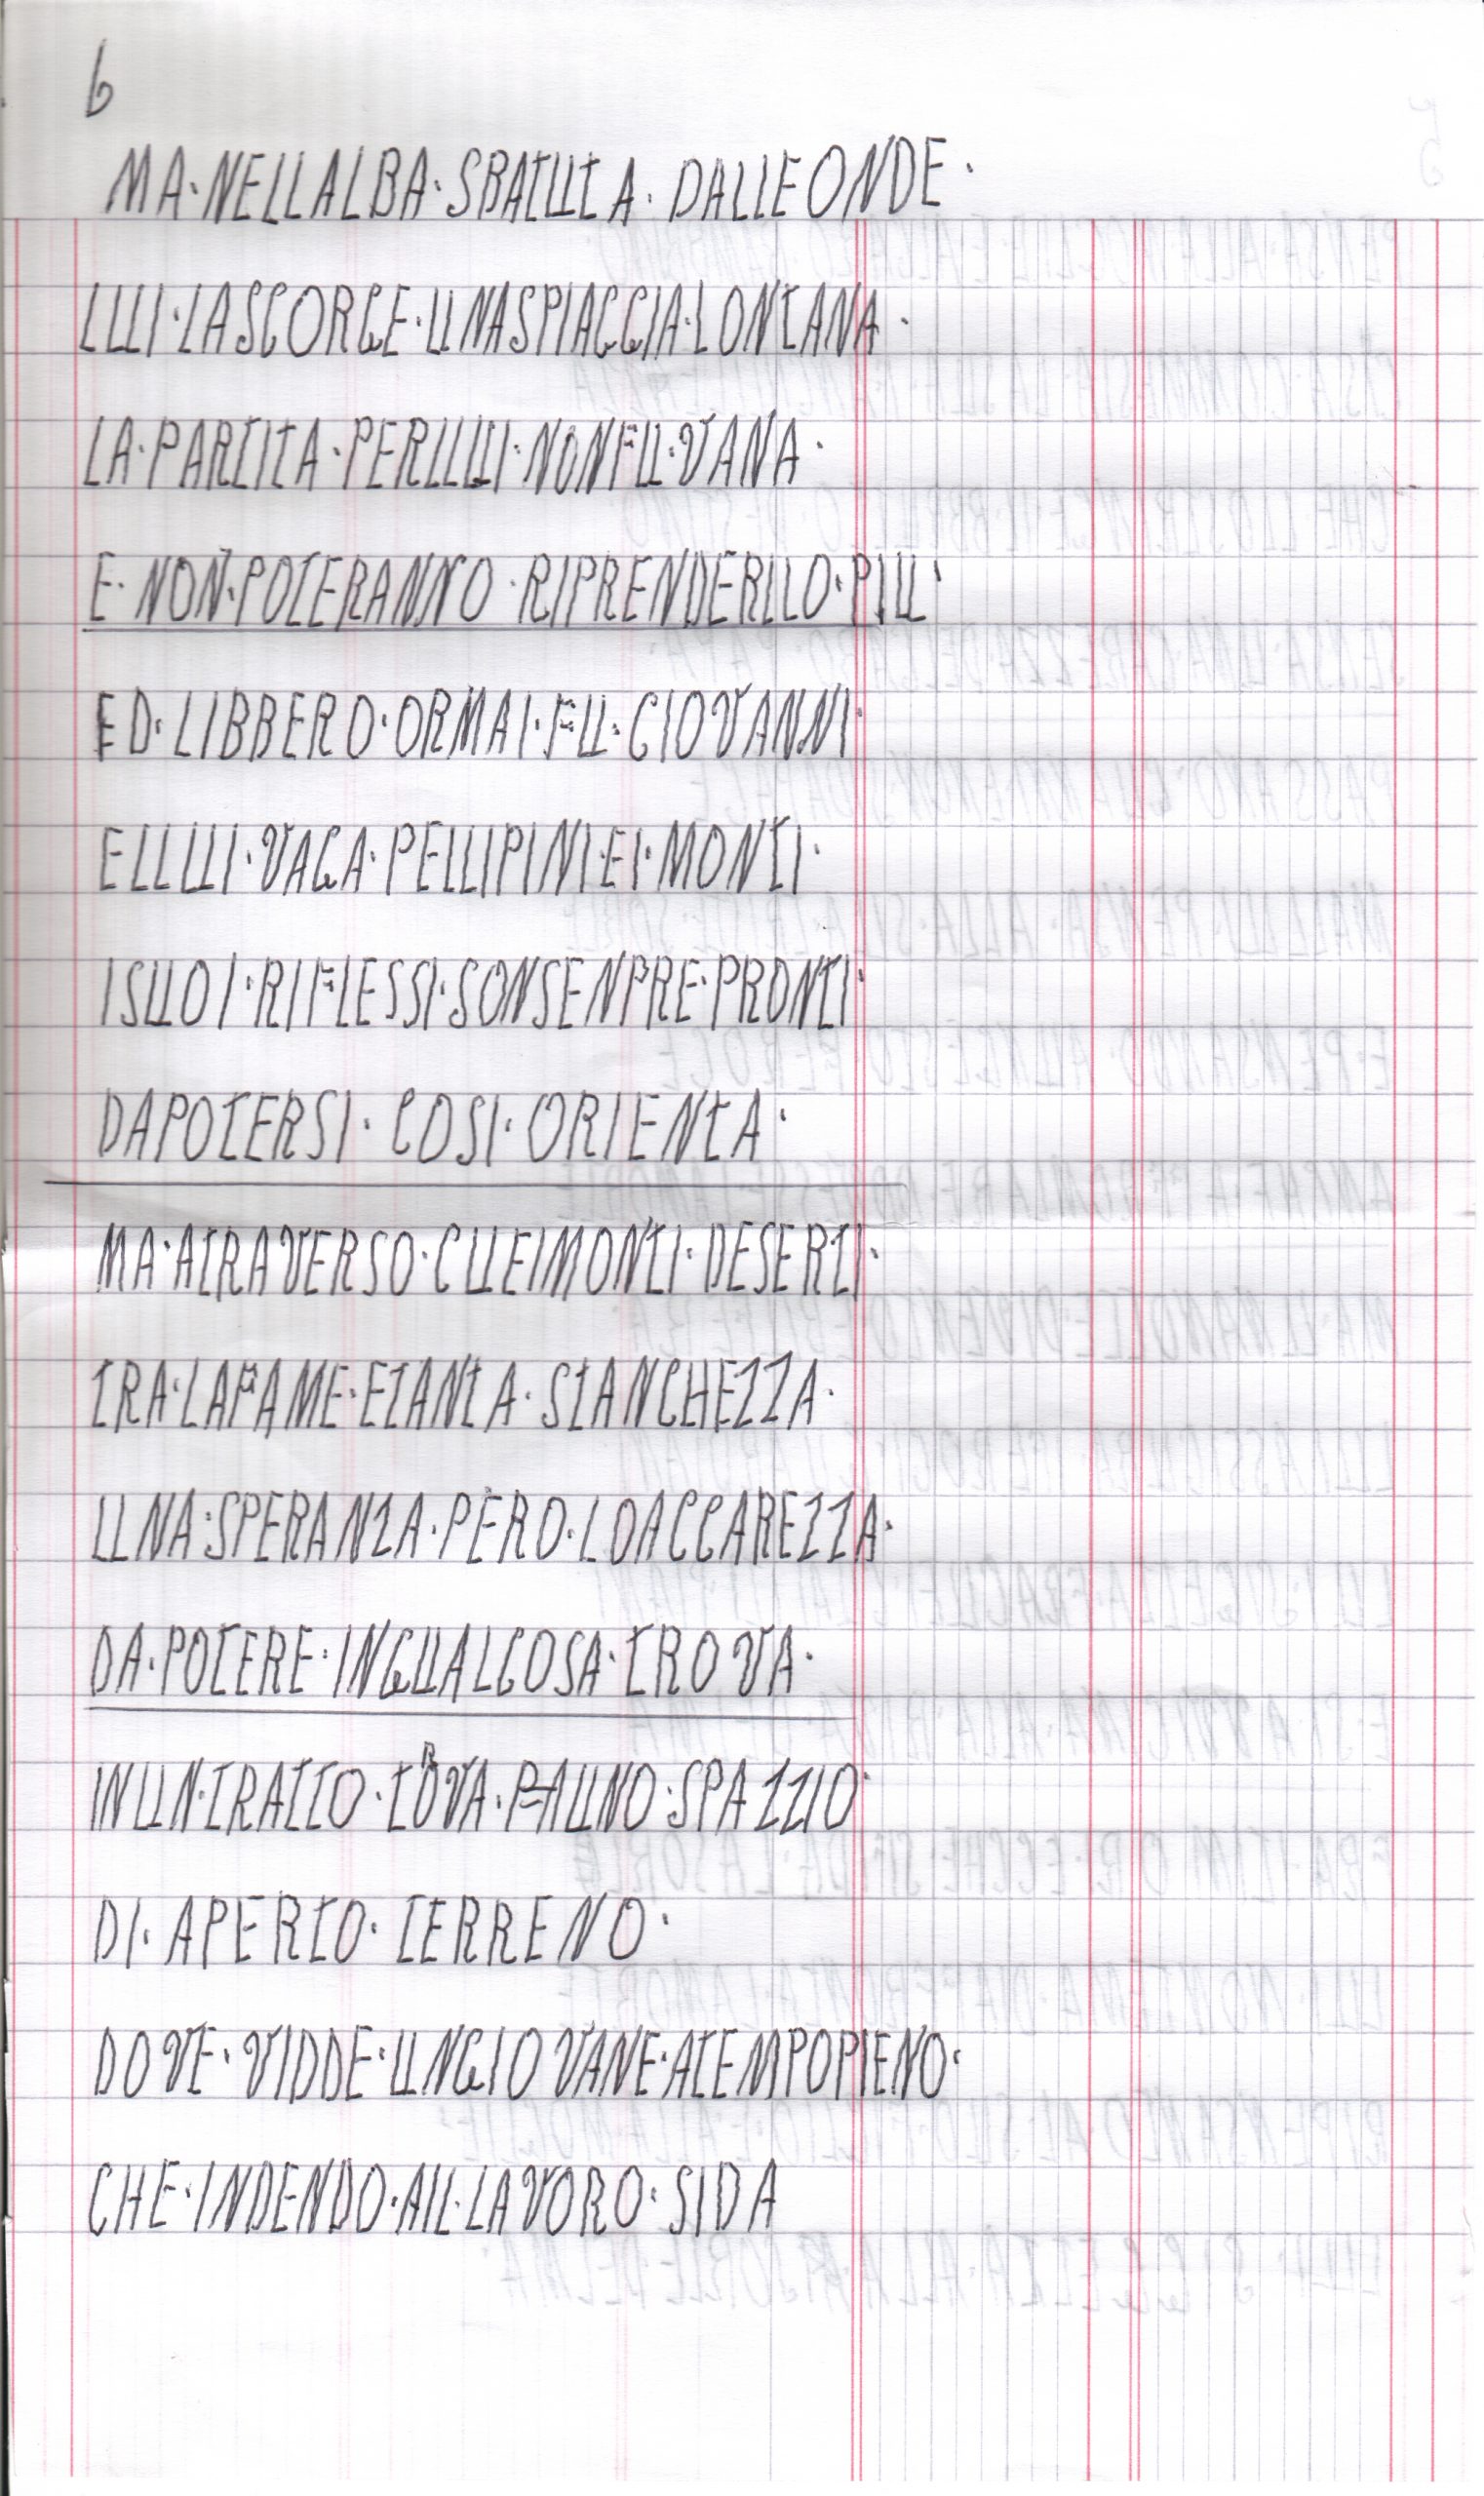 6
MA·NELLALBA·SBATUTA·DALLEONDE·
LUI·LASCORGE·UNASPIAGGIA·LONTANA·
LA·PARTITA·PERLLUI·NONFU·VANA·
E·NON·POTERANNO·RIPRENDERLLO·PIU·
ED·LIBBERO·ORMAI·FU·GIOVANNI·
ELLUI·VAGA·PELLIPINI·EI·MONTI·
ISUOI·RIFLESSI·SONSENPRE·PRONTI·
DAPOTERSI·COSI·ORIENTA·
MA·ATRAVERSO·CUEIMONTI·DESERTI·
TRA·LAFAME·ETANTA·STANCHEZZA·
UNA·SPERANZA·PERO·LOACCAREZZA·
DA·POTERE·INGUALCOSA·TROVA·
INUN·TRATTO·TROVA·P·AUNO·SPAZZIO·
DI·APERTO·TERRENO·
DOVE·VIDDE·UNGIOVANE·ATEMPOPIENO·
CHE·INDENDO·AIL·LAVORO·SIDA